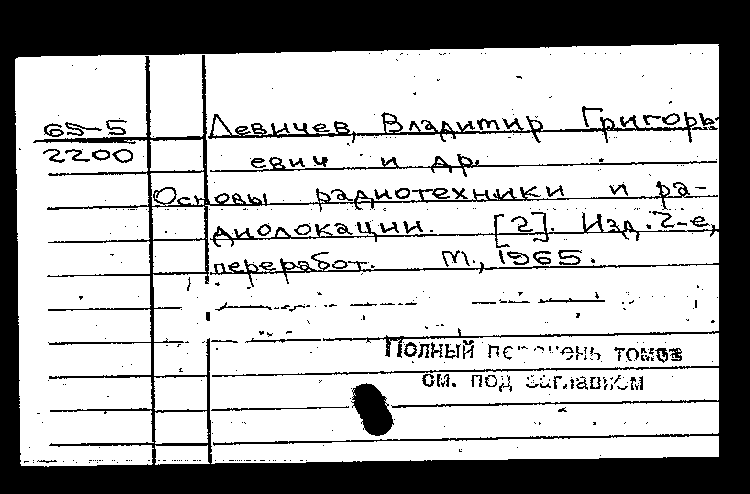 65-5
2200
Левичев, Владимир Григорь-
евич и др.
Основы радиотехники и ра-
диолокации. [2]. Изд. 2-е,
переработ. М., 1965.
Полный перечень томов
см. под заглавием